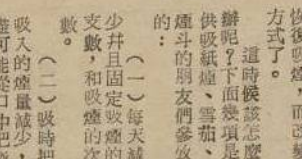 恢復吸煙，而已戒
方式了。
這時候該怎麼
辦呢？下面幾項是
供吸紙煙、雪茄、
煙斗的朋友們參攷
的：
（一）每天減
少幷且固定吸煙的
支數，和吸煙的次
數。
（二）吸時把
吸入的煙量減少，
儘可能從口中把